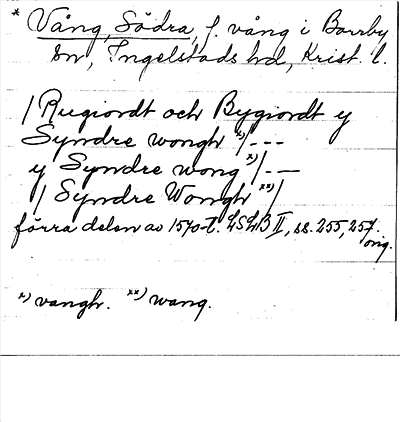 * Vång, Södra, f. vång i Borrby
sn, Ingelstads hd, Krist. l.
/ Rugiordt och Bygiordt y
Syndre wongh *)/ - - -
y Syndre wong *)/. —
/ Syndre Wongh **)/
förra delen av 1570-t. LSLB II, ss. 255, 257.
orig.
*) vangh. **) wang.